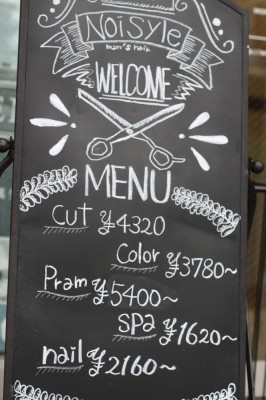 NOiSYLe
men's hair
WELCOME
MENU
Cut ¥4320
Color ¥3780~
Pram ¥5400~
Spa ¥1620~
nail ¥2160~